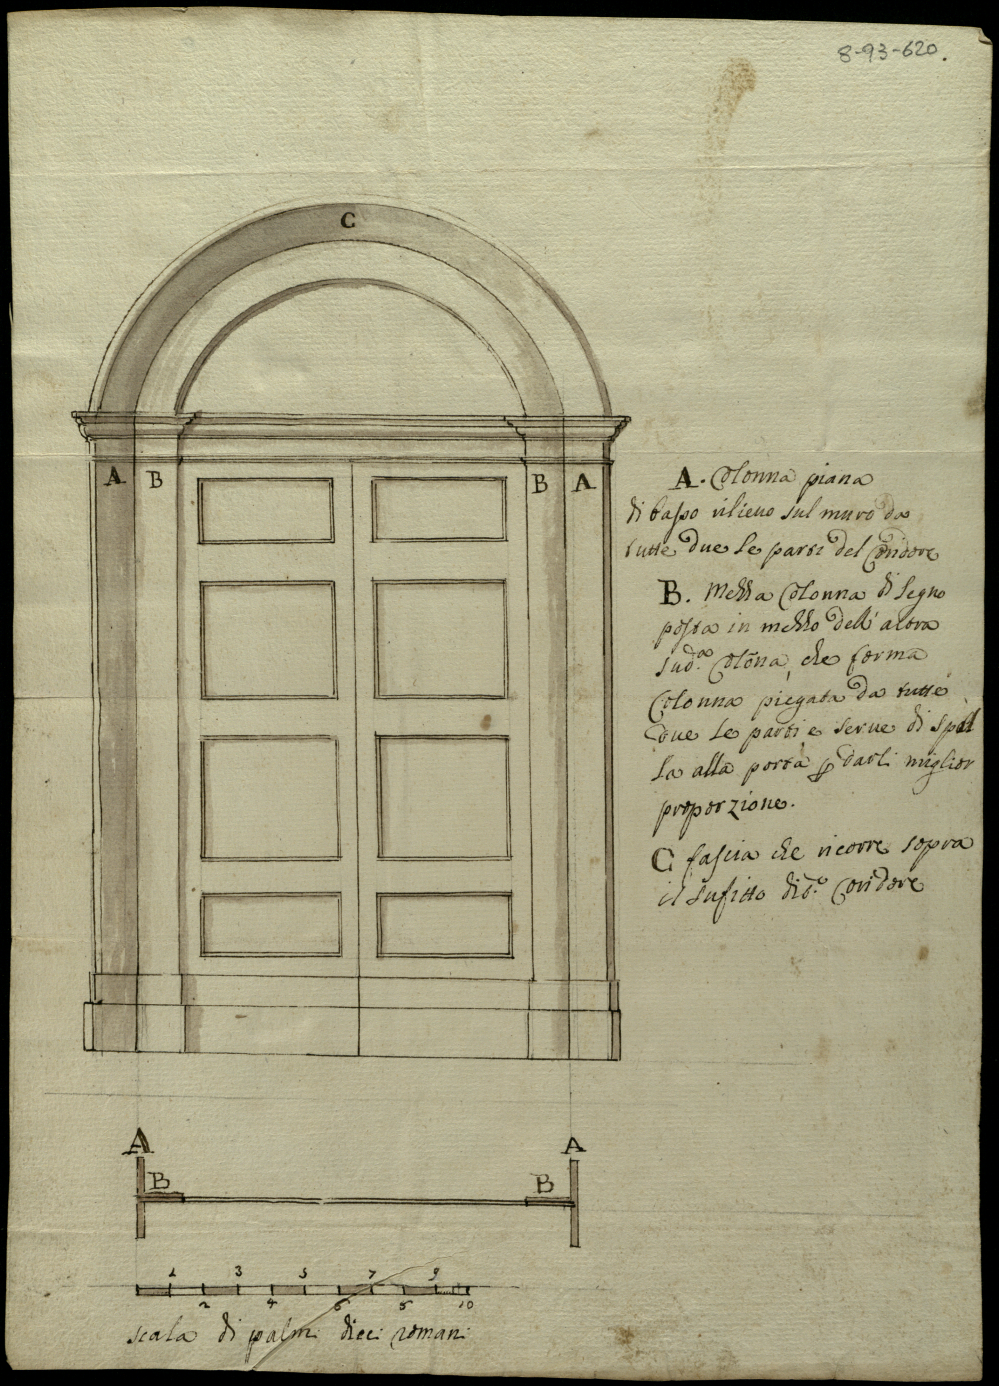 8-93-620.
C
A B B A
A. Colonna piana
di basso rilieuo sul muro da
tutte due le parti del Coridore
B. Mezza Colonna di legno
posta in mezzo dell'altra
sud.a Colōna, che forma
Colonna piegata da tutte
due le parti e serue di spal
la alla porta p darli miglior
proporzione.
C fascia che ricorre sopra
il sufitto di d.o Coridore
A A
B B
1 3 5 7 9
2 4 6 8 10
scala di palmi dieci romani